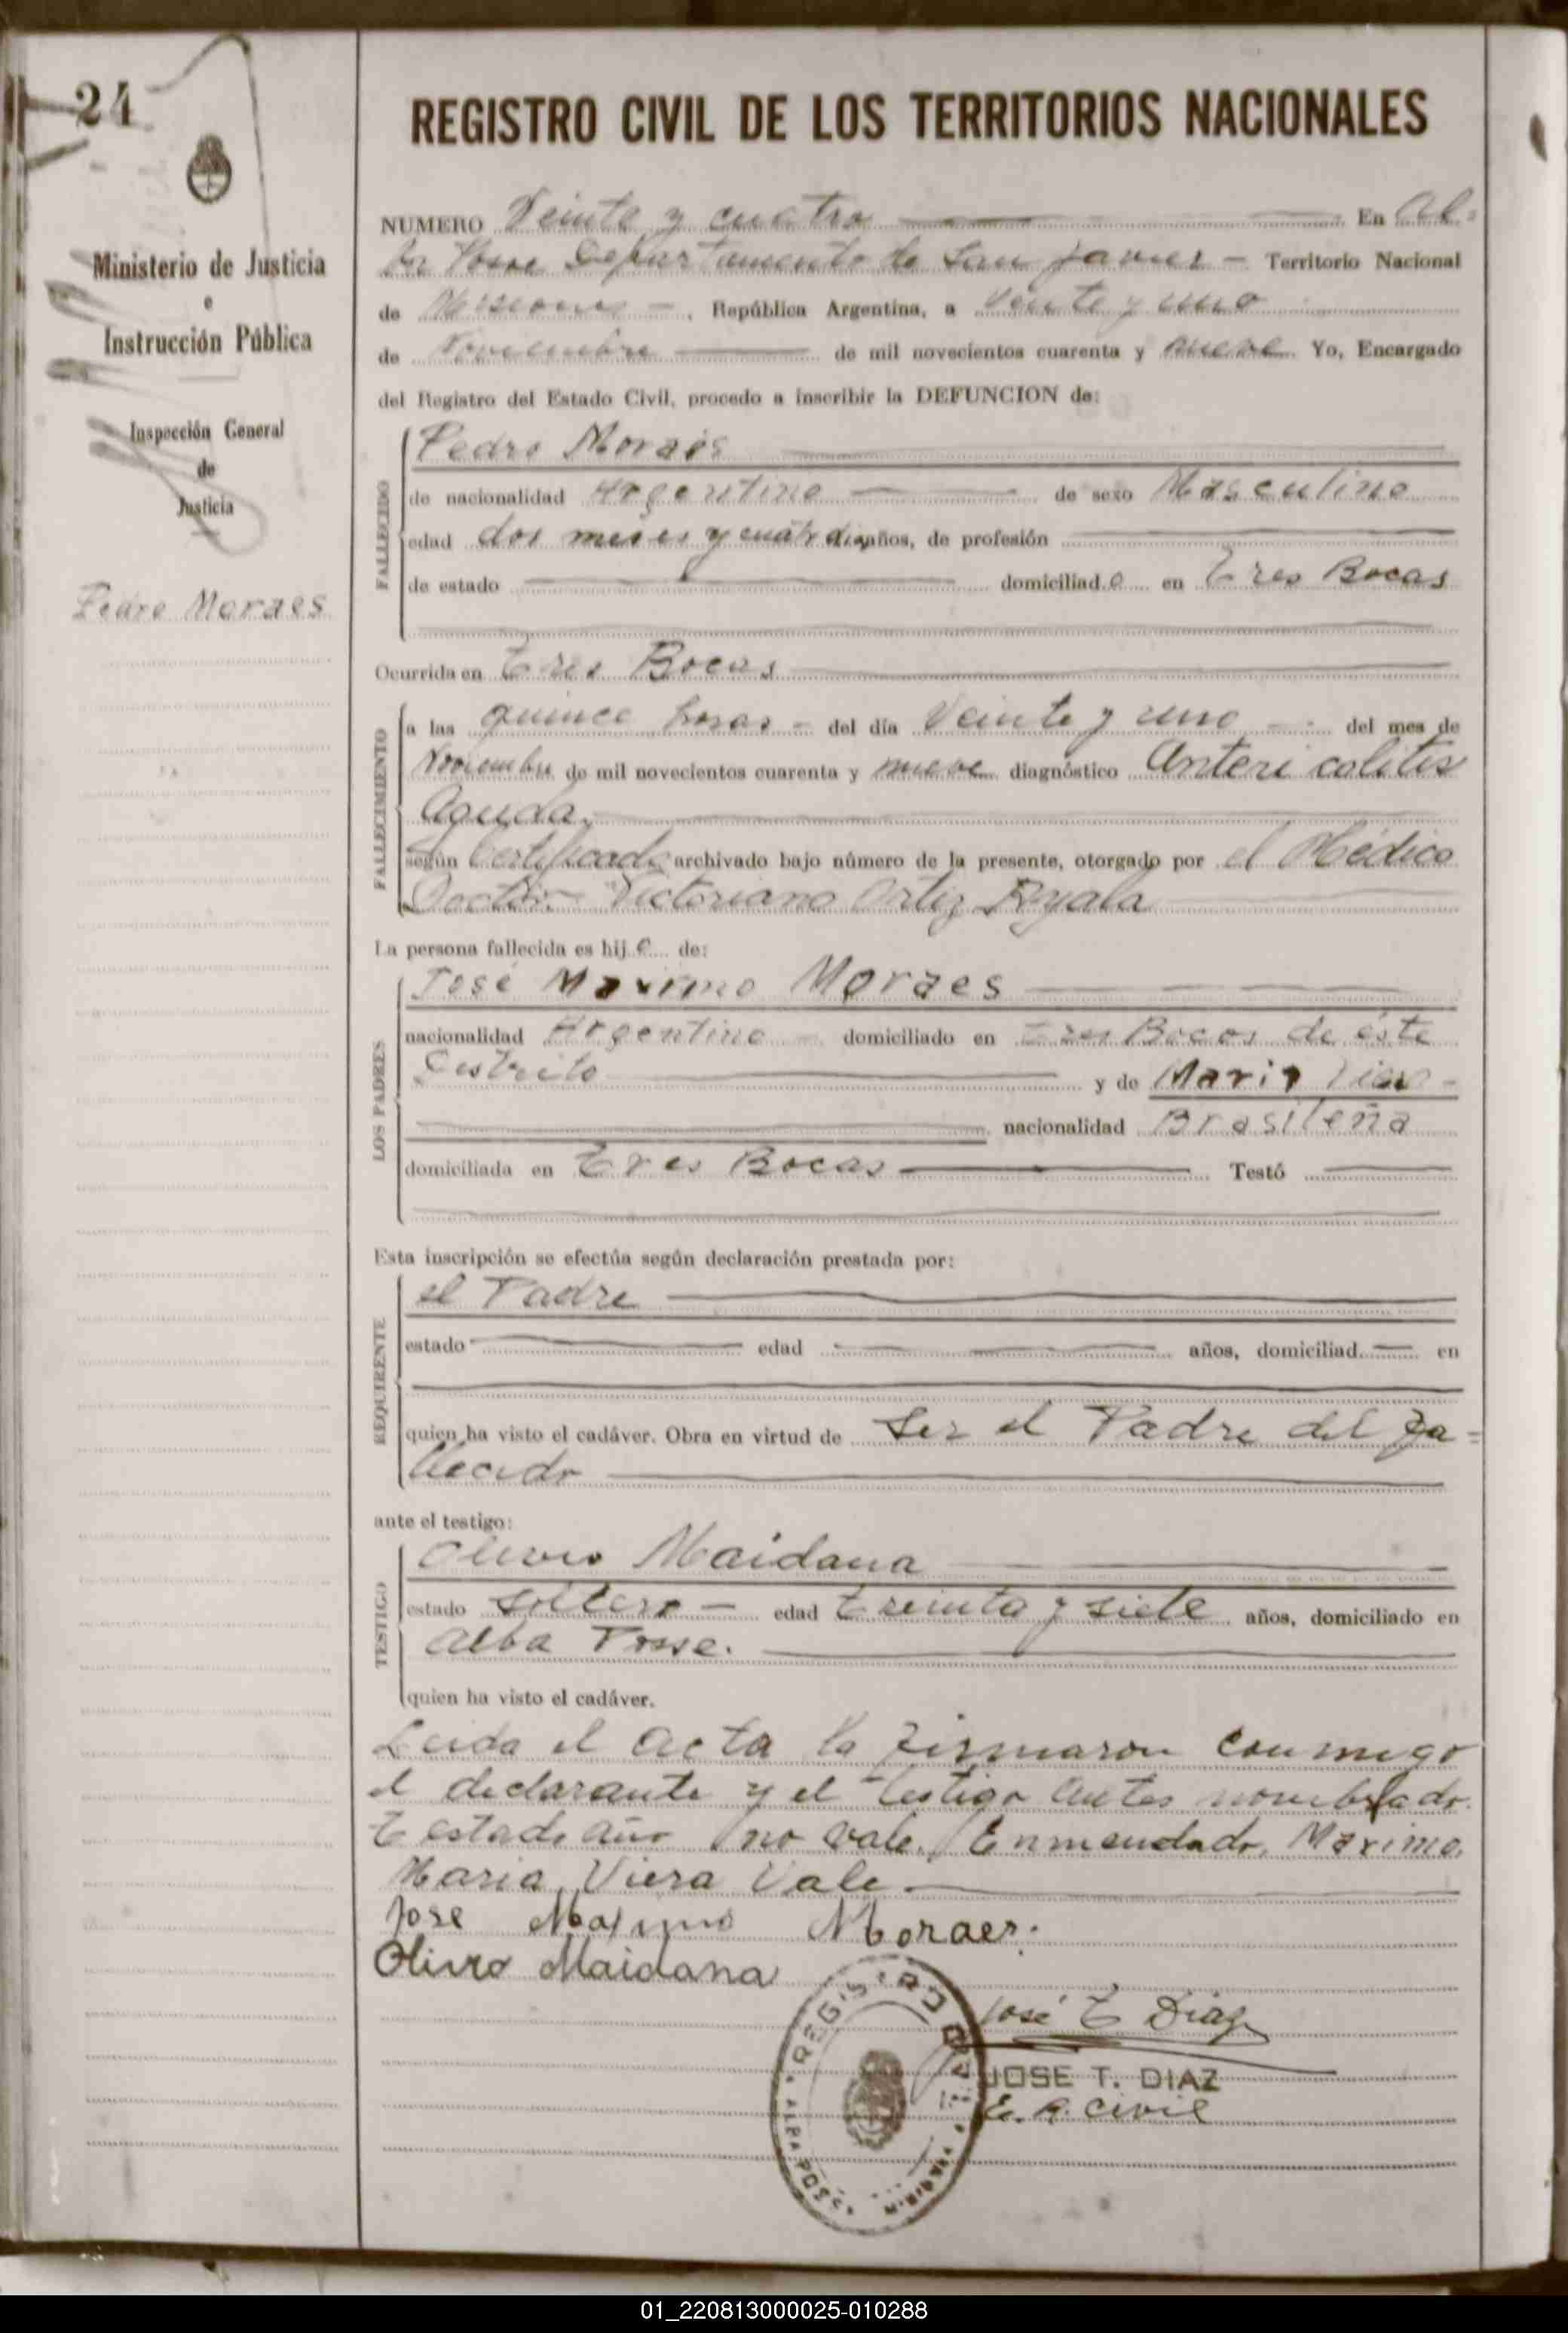 24
Ministerio de Justicia
e
Instrucción Pública
Inspección General
de
Justicia
Pedro Moraes
REGISTRO CIVIL DE LOS TERRITORIOS NACIONALES
NUMERO Veinte y cuatro En Al-
ba Posse Departamento de San Javier - Territorio Nacional
de Misiones -, República Argentina, a veinte y uno
de Noviembre de mil novecientos cuarenta y nueve Yo, Encargado
del Registro del Estado Civil, procedo a inscribir la DEFUNCION de:
FALLECIDO
Pedro Moraes
de nacionalidad Argentino de sexo Masculino
edad dos meses y cuatr dias años, de profesión
de estado domiciliad.o en Tres Bocas
Ocurrida en Tres Bocas
FALLECIMIENTO
a las quince horas - del día Veinte y uno del mes de
Noviembre de mil novecientos cuarenta y nueve diagnóstico Anteri colitis
Aguda.
según Certificado archivado bajo número de la presente, otorgado por el Médico
Doctor Victoriano Ortiz Ayala
La persona fallecida es hij.o de:
LOS PADRES
José Maximo Moraes
nacionalidad Argentino - domiciliado en Tres Bocas de éste
Distrito y de Maria Viera -
nacionalidad Brasileña
domiciliada en Tres Bocas Testó
Esta inscripción se efectúa según declaración prestada por:
REQUIRENTE
el Padre
estado edad años, domiciliad en
quien ha visto el cadáver. Obra en virtud de Ser el Padre del fa=
llecido
ante el testigo:
TESTIGO
Olivio Maidana
estado soltero - edad treinta y siete años, domiciliado en
Alba Posse.
quien ha visto el cadáver.
Leida el acta la firmaron conmigo
el declarante y el testigo antes nombrado.
Testado año no vale. Enmendado, Maximo,
Maria, Viera Vale.
Jose Maximo Moraes.
Olivio Maidana
José T Diaz
JOSE T. DIAZ
E. R. Civil
REGISTRO CIVIL
ALBA POSSE
01_220813000025-010288